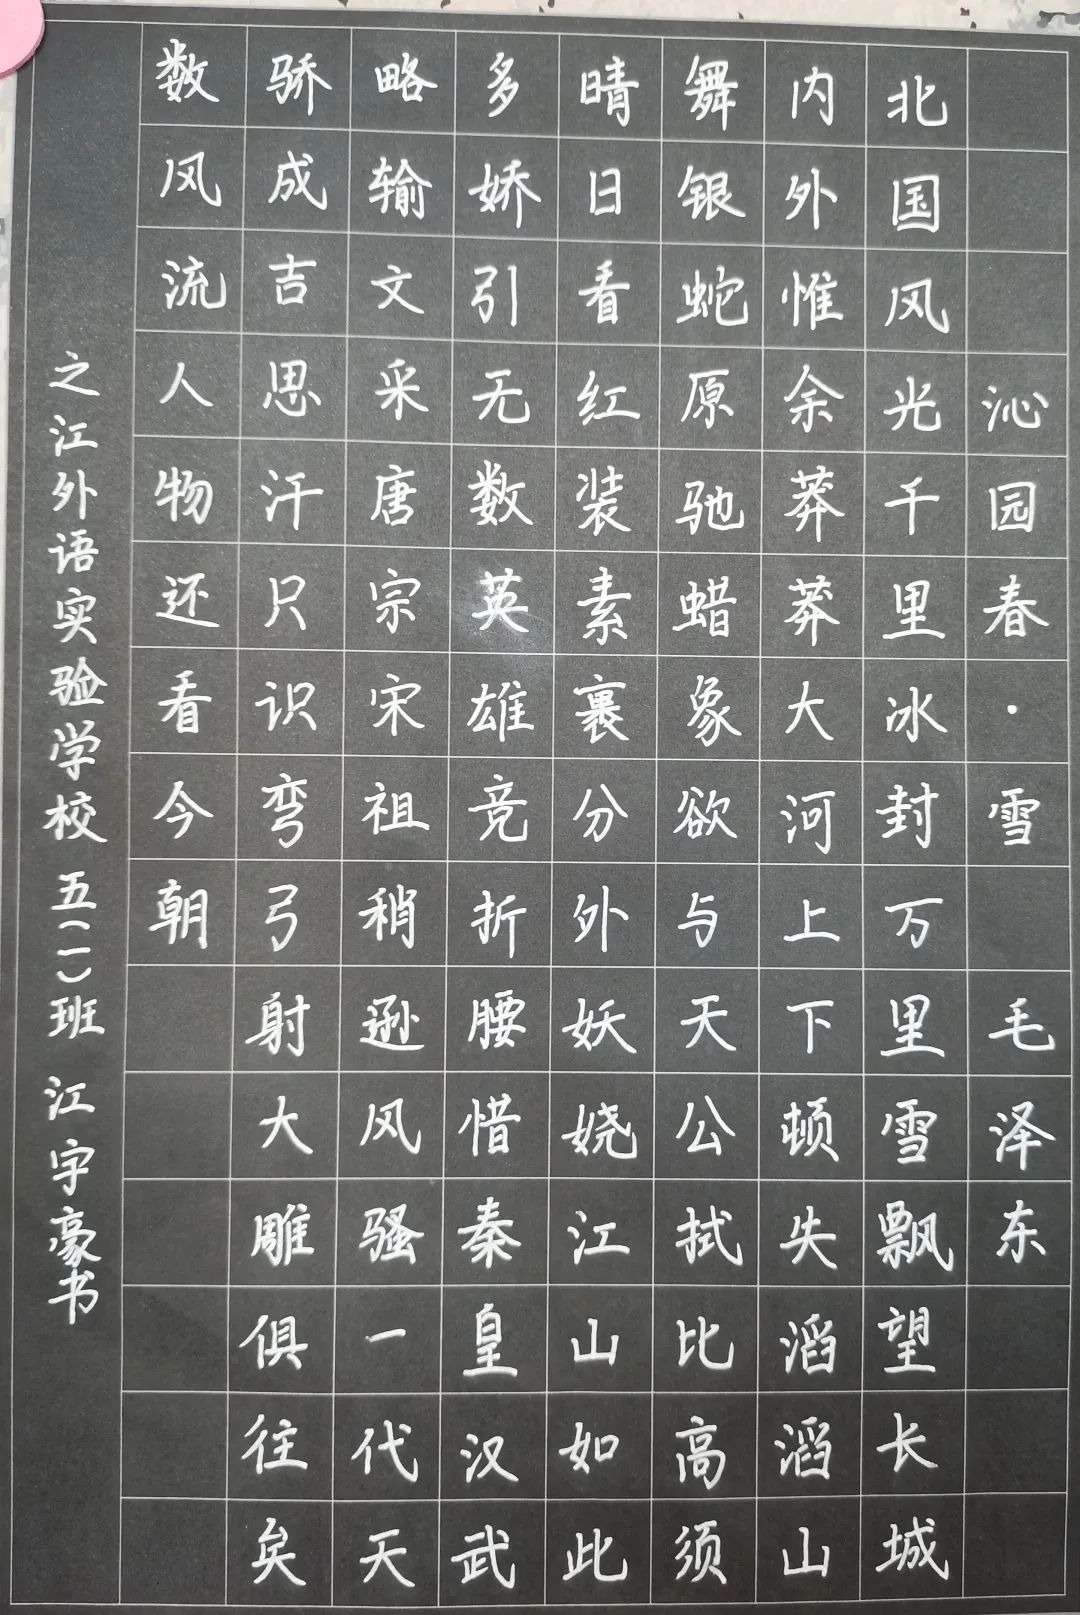 沁园春·雪 毛泽东
北国风光千里冰封万里雪飘望长城
内外惟余莽莽大河上下顿失滔滔山
舞银蛇原驰蜡象欲与天公拭比高须
晴日看红装素裹分外妖娆江山如此
多娇引无数英雄竞折腰惜秦皇汉武
略输文采唐宗宋祖稍逊风骚一代天
骄成吉思汗只识弯弓射大雕俱往矣
数风流人物还看今朝
之江外语实验学校 五(二)班 江宇豪书